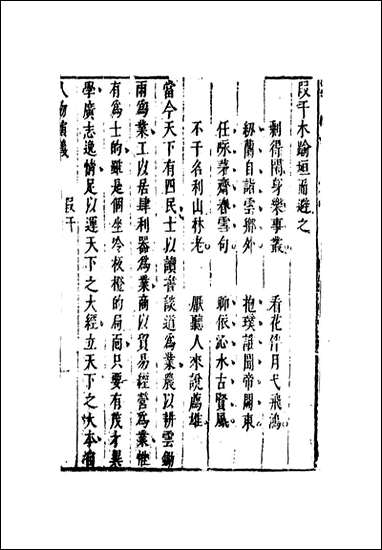 段干木踰垣而避之
剩得閒身樂事叢　看花竹月弋飛鴻
紉蘭自詣雲鄉外　抱璞
任咏芽齋春雪句　聊依沁水古賢風
不干名利山林老　厭聽人來說薦雄
當今天下有四民士以讀書談道爲業農以耕雲鋤
雨爲業工以居肆利器爲業商以貿易經營爲業惟
有爲士的雖是個坐冷板櫈的局面只要有茂才異
學廣志逸情足以運天下之大經立天下之大本
人物演義
段干